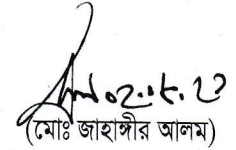 ০২.০৮.২৩
(মোঃ জাহাঙ্গীর আলম)